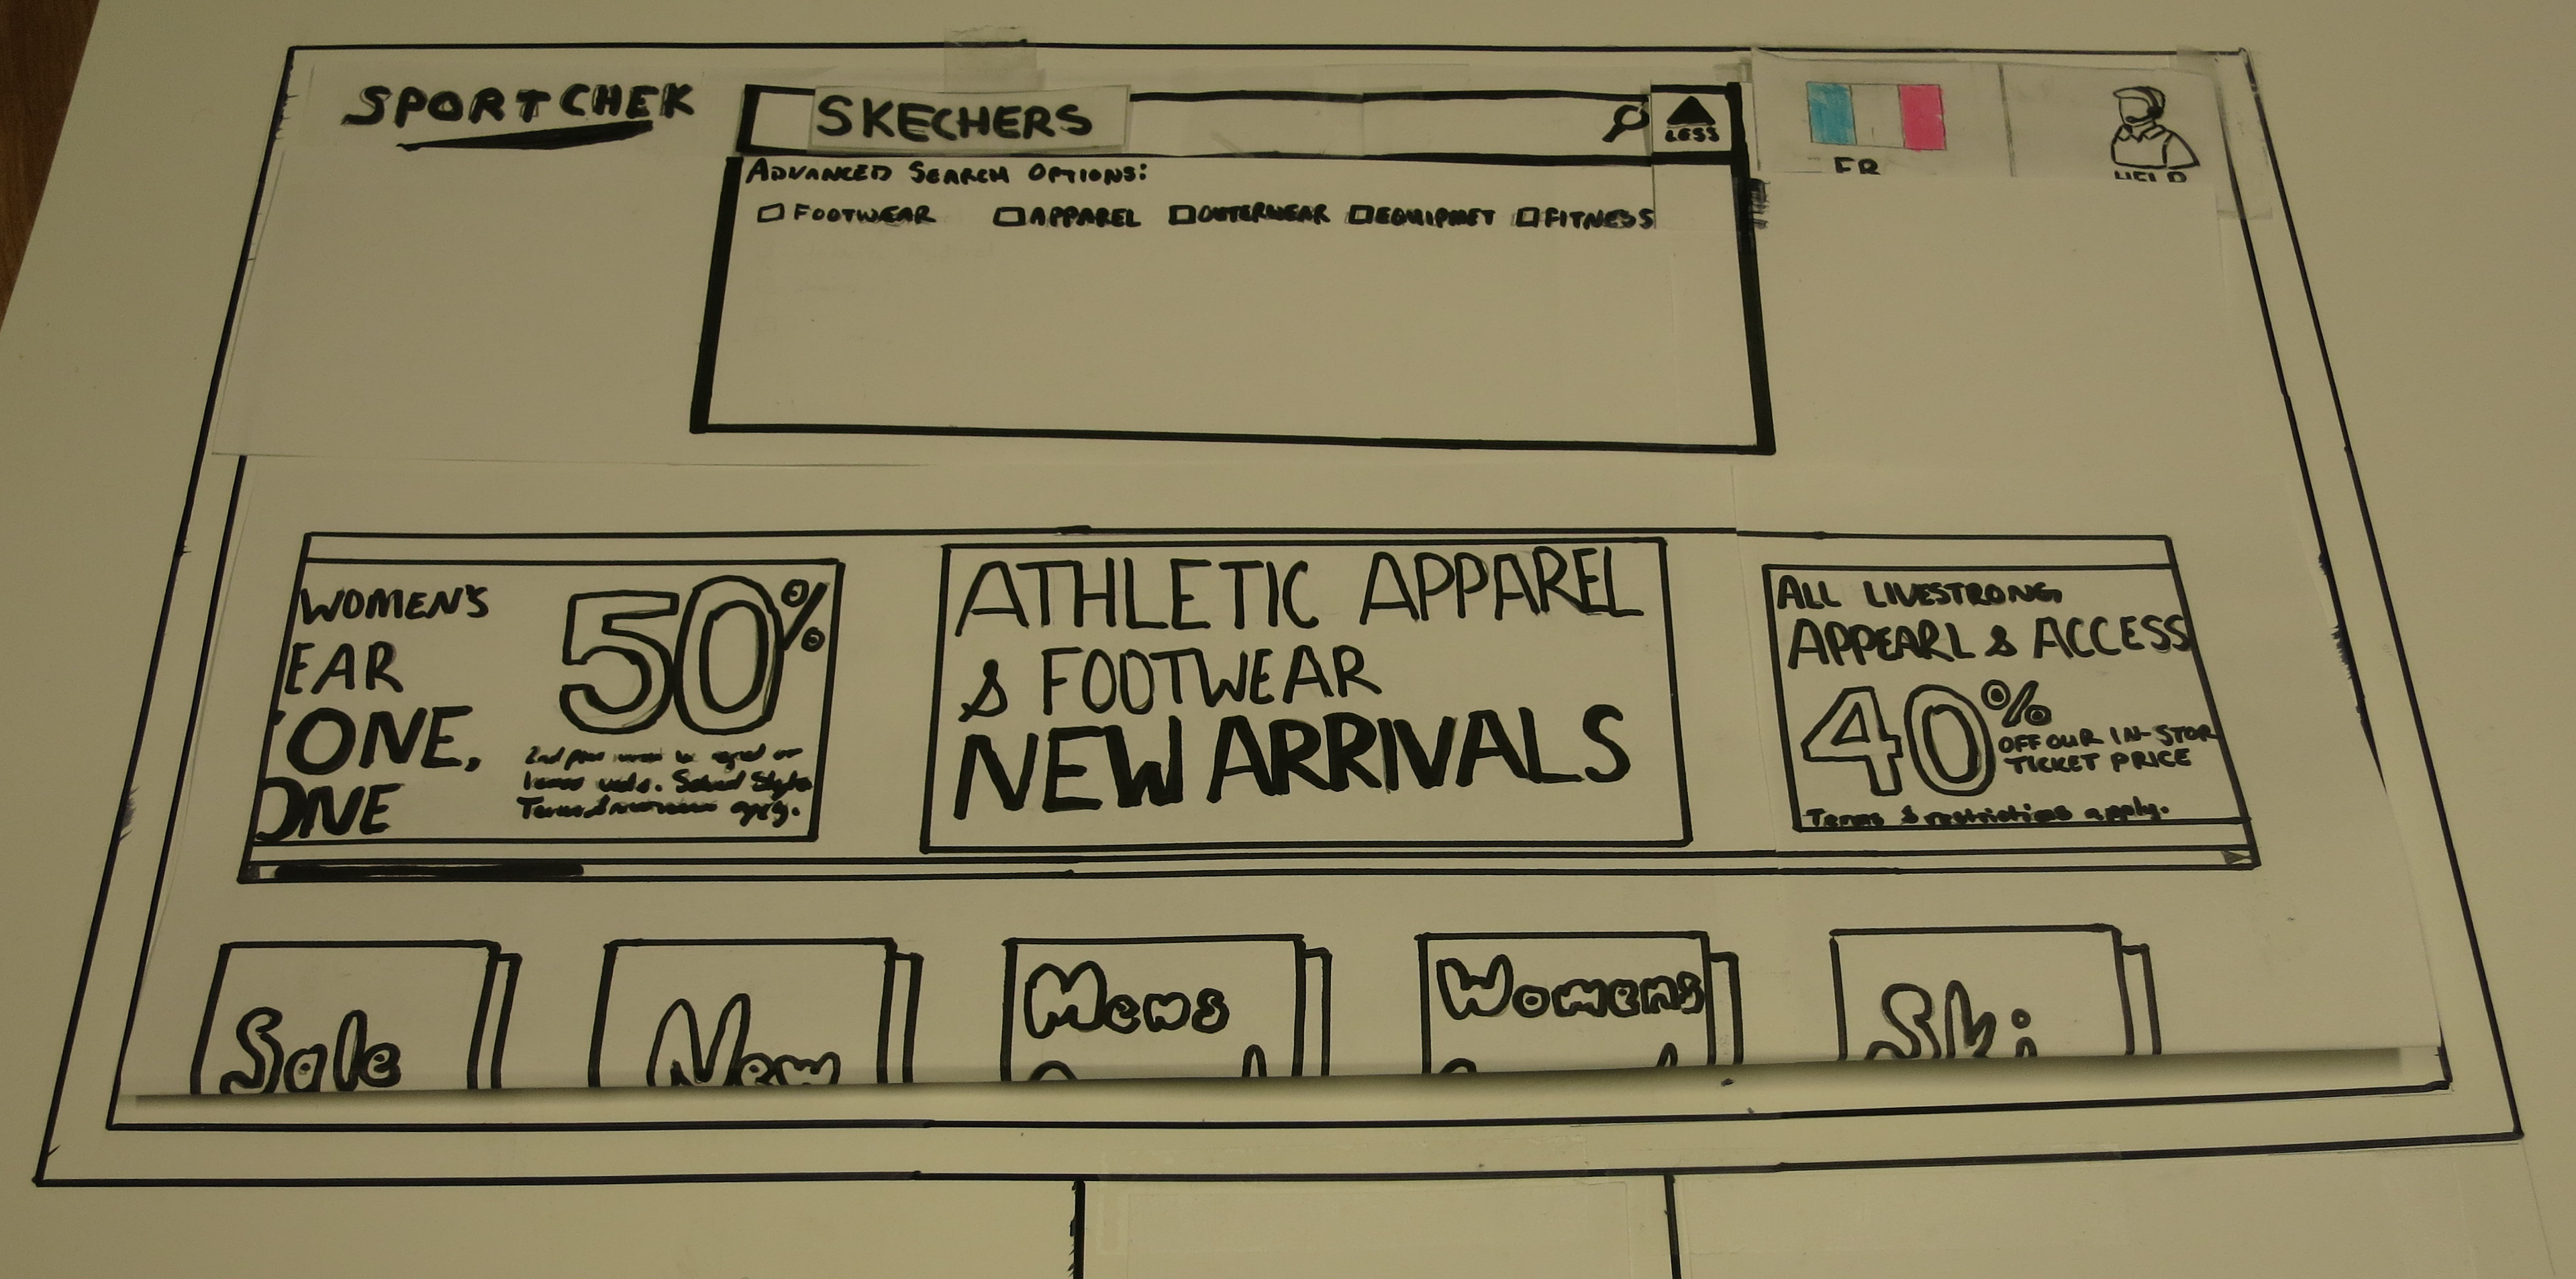 SPORTCHEK
SKECHERS
LESS
FR
HELP
ADVANCED SEARCH OPTIONS:
FOOTWEAR APPAREL OUTERWEAR EQUIPMET FITNESS
WOMEN'S
EAR
ONE,
ONE
50%
2nd
Terms apply.
ATHLETIC APPAREL
& FOOTWEAR
NEW ARRIVALS
ALL LIVESTRONG
APPEARL & ACCESS
40%
OFF OUR IN-STOR
TICKET PRICE
Terms & restrictions apply.
Sale
New
Mens
Womens
Ski